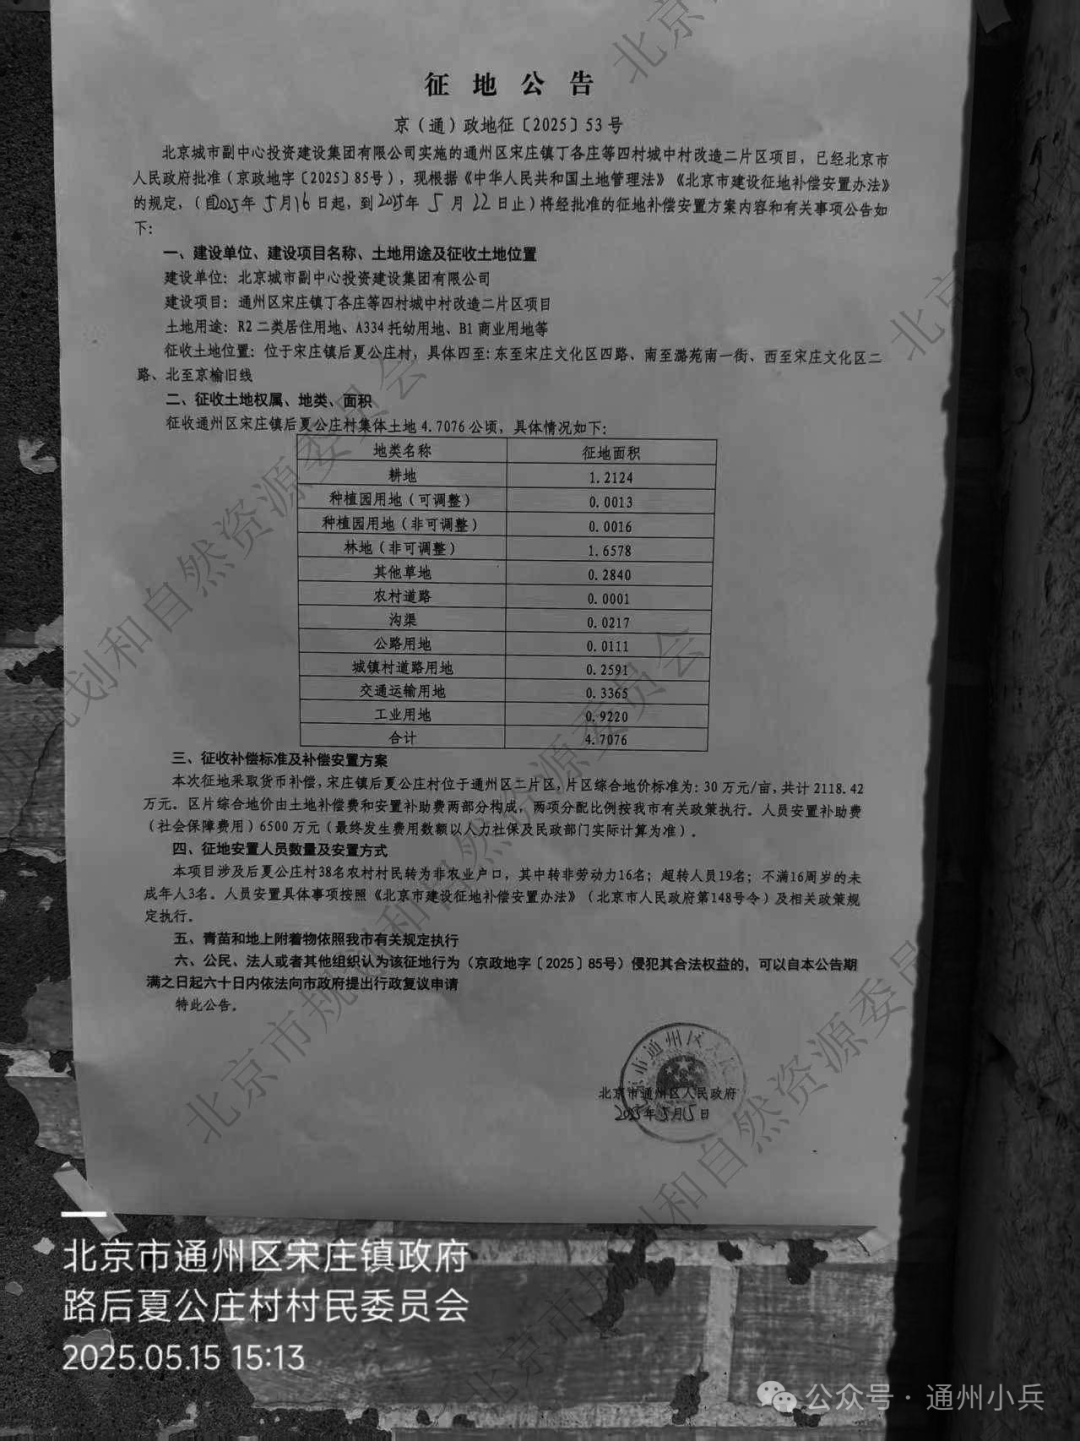 征地公告
京（通）政地征〔2025〕53号
北京城市副中心投资建设集团有限公司实施的通州区宋庄镇丁各庄等四村城中村改造二片区项目，已经北京市
人民政府批准（京政地字〔2025〕85号），现根据《中华人民共和国土地管理法》《北京市建设征地补偿安置办法》
的规定，（自2025年5月16日起，到2025年5月22日止）将经批准的征地补偿安置方案内容和有关事项公告如
下：
一、建设单位、建设项目名称、土地用途及征收土地位置
建设单位：北京城市副中心投资建设集团有限公司
建设项目：通州区宋庄镇丁各庄等四村城中村改造二片区项目
土地用途：R2二类居住用地、A334托幼用地、B1商业用地等
征收土地位置：位于宋庄镇后夏公庄村，具体四至：东至宋庄文化区四路、南至潞苑南一街、西至宋庄文化区二
路、北至京榆旧线
二、征收土地权属、地类、面积
征收通州区宋庄镇后夏公庄村集体土地4.7076公顷，具体情况如下：
地类名称 征地面积
耕地 1.2124
种植园用地（可调整） 0.0013
种植园用地（非可调整） 0.0016
林地（非可调整） 1.6578
其他草地 0.2840
农村道路 0.0001
沟渠 0.0217
公路用地 0.0111
城镇村道路用地 0.2591
交通运输用地 0.3365
工业用地 0.9220
合计 4.7076
三、征收补偿标准及补偿安置方案
本次征地采取货币补偿，宋庄镇后夏公庄村位于通州区二片区，片区综合地价标准为：30万元/亩，共计2118.42
万元。区片综合地价由土地补偿费和安置补助费两部分构成，两项分配比例按我市有关政策执行。人员安置补助费
（社会保障费用）6500万元（最终发生费用数额以人力社保及民政部门实际计算为准）。
四、征地安置人员数量及安置方式
本项目涉及后夏公庄村38名农村村民转为非农业户口，其中转非劳动力16名；超转人员19名；不满16周岁的未
成年人3名。人员安置具体事项按照《北京市建设征地补偿安置办法》（北京市人民政府第148号令）及相关政策规
定执行。
五、青苗和地上附着物依照我市有关规定执行
六、公民、法人或者其他组织认为该征地行为（京政地字〔2025〕85号）侵犯其合法权益的，可以自本公告期
满之日起六十日内依法向市政府提出行政复议申请
特此公告。
北京市通州区人民政府
2025年5月15日
北京市规划和自然资源委员会
北京市通州区宋庄镇政府
路后夏公庄村村民委员会
2025.05.15 15:13
公众号·通州小兵